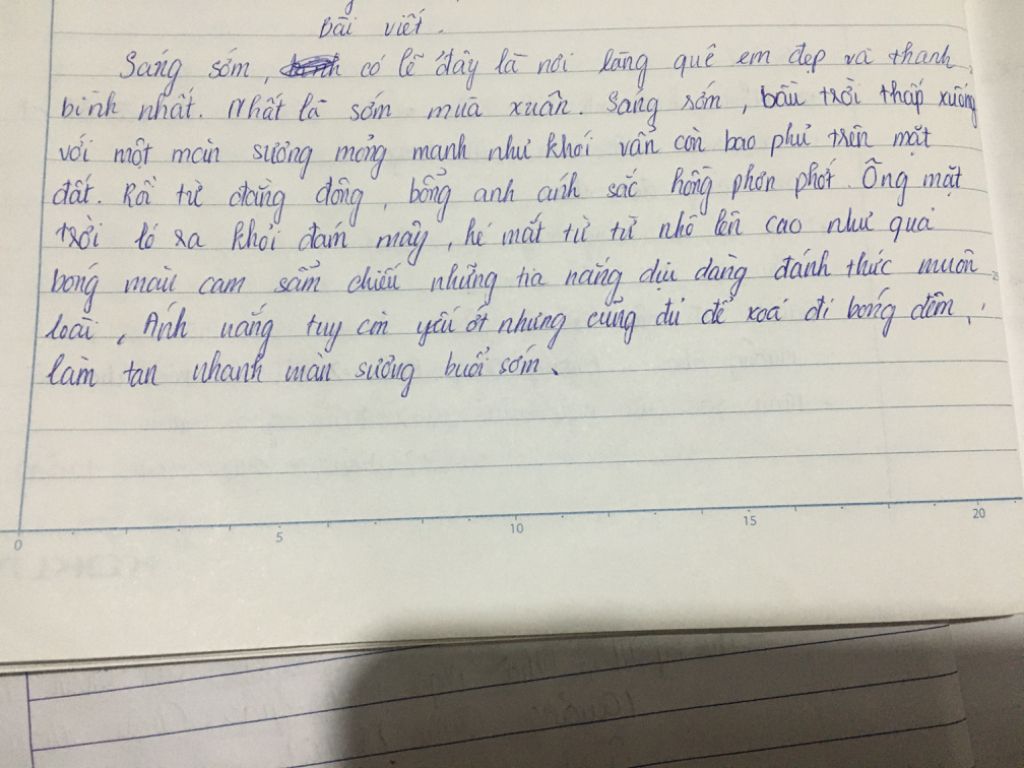 Bài viết.
Sáng sớm, có lẽ đây là nơi làng quê em đẹp và thanh
bình nhất. Nhất là sớm mùa xuân. Sáng sớm, bầu trời thấp xuống
với một màn sương mỏng manh như khói vẫn còn bao phủ trên mặt
đất. Rồi từ đằng đông, bỗng anh ánh sắc hồng phơn phớt. Ông mặt
trời ló ra khỏi đám mây, hé mắt từ từ nhô lên cao như quả
bóng màu cam sẫm chiếu những tia nắng dịu dàng đánh thức muôn
loài, Ánh nắng tuy còn yếu ớt nhưng cũng đủ để xoá đi bóng đêm,
làm tan nhanh màn sương buổi sớm.
0 5 10 15 20